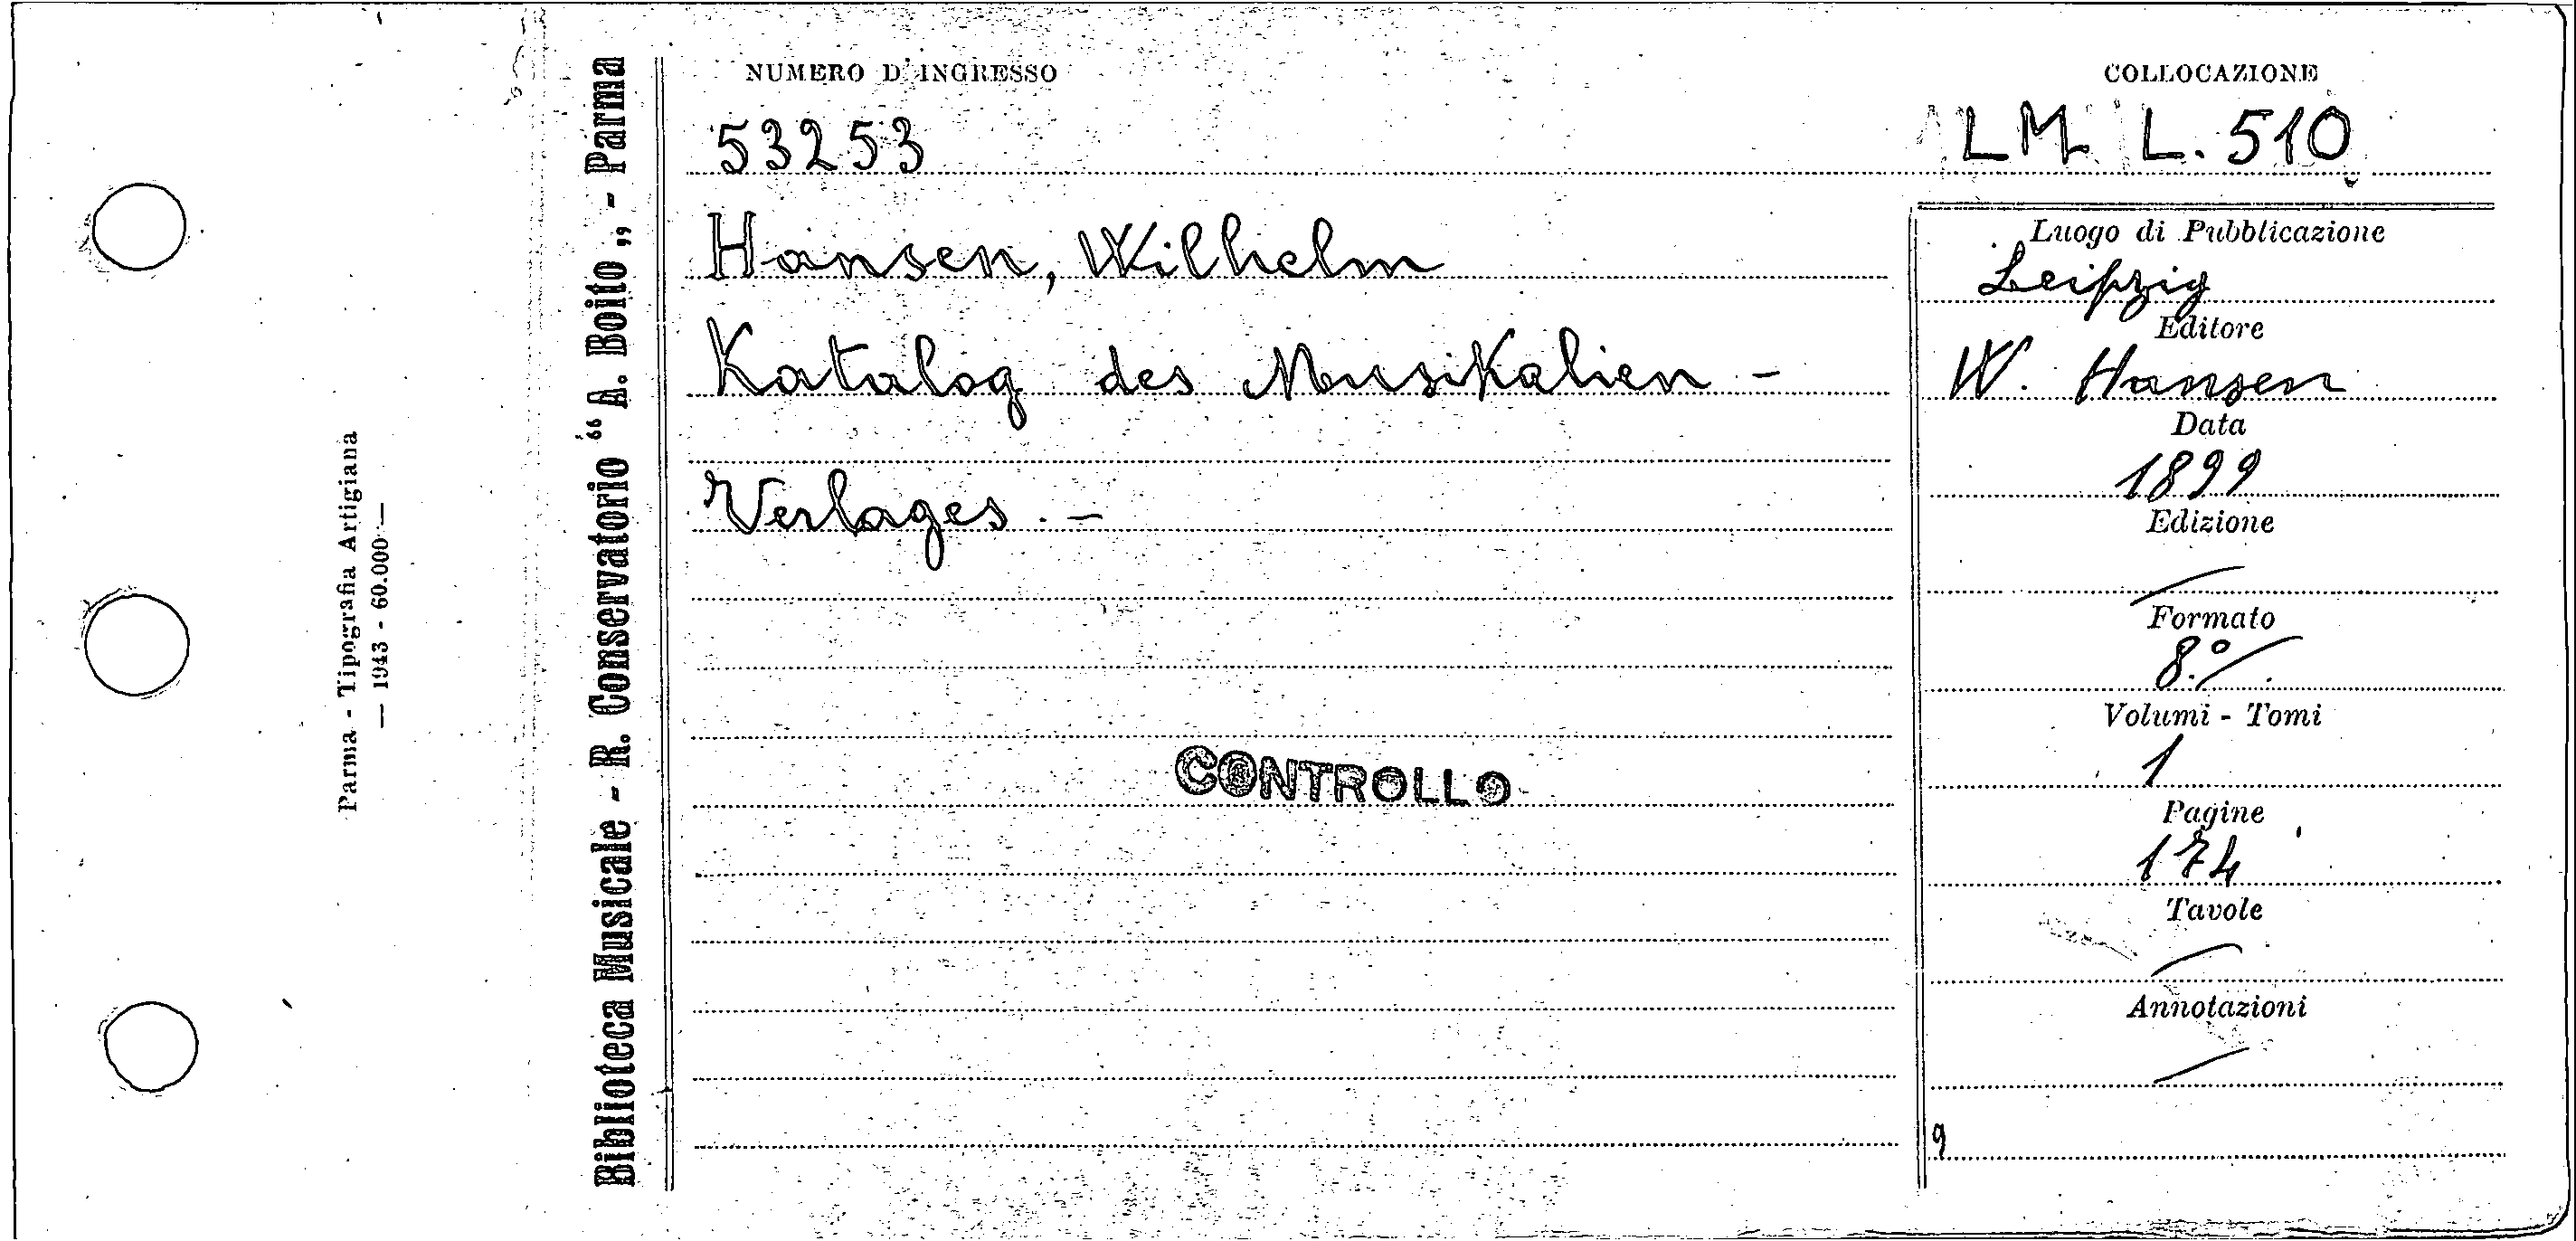 Parma - Tipografia Artigiana
— 1943 - 60.000 —
Biblioteca Musicale - R. Conservatorio “A. Boito„ - Parma
NUMERO D'INGRESSO
53253
COLLOCAZIONE
LM L. 510
Hansen, Wilhelm
Katalog des Musikalien -
Verlages. -
CONTROLLO
Luogo di Pubblicazione
Leipzig
Editore
W. Hansen
Data
1899
Edizione
Formato
8.°
Volumi - Tomi
1
Pagine
174
Tavole
Annotazioni
9